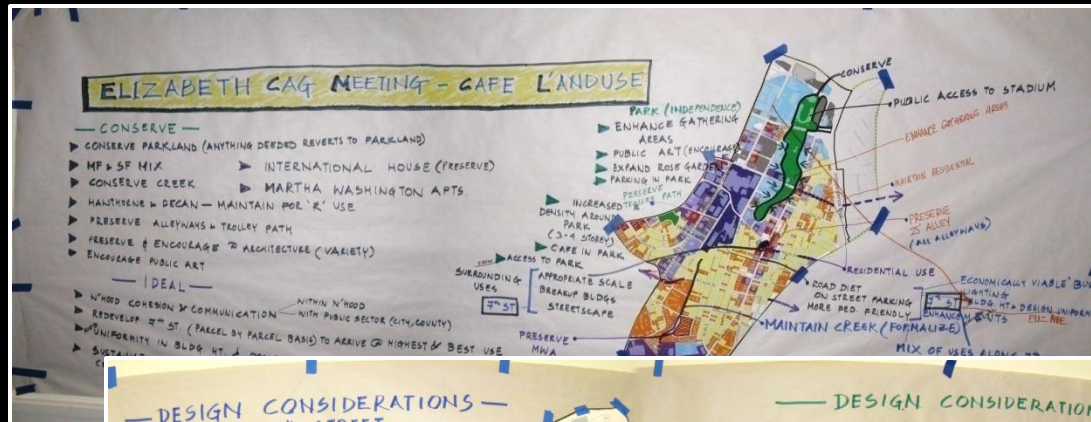 ELIZABETH CAG MEETING - CAFE L'ANDUSE
— CONSERVE —
CONSERVE PARKLAND (ANYTHING DEEDED REVERTS TO PARKLAND)
MF & SF MIX
CONSERVE CREEK
INTERNATIONAL HOUSE (PRESERVE)
MARTHA WASHINGTON APTS.
HAWTHORNE & DECAN — MAINTAIN FOR 'R' USE
PRESERVE ALLEYWAYS & TROLLEY PATH
PRESERVE & ENCOURAGE ARCHITECTURE (VARIETY)
ENCOURAGE PUBLIC ART
— IDEAL —
N'HOOD COHESION & COMMUNICATION
WITHIN N'HOOD
WITH PUBLIC SECTOR (CITY, COUNTY)
REDEVELOP 7TH ST. (PARCEL BY PARCEL BASIS) TO ARRIVE @ HIGHEST & BEST USE
UNIFORMITY IN BLDG. HT. &
PARK (INDEPENDENCE)
ENHANCE GATHERING
AREAS
PUBLIC ART (ENCOURAGE)
EXPAND ROSE GARDEN
PARKING IN PARK
PRESERVE
TROLLEY PATH
INCREASED
DENSITY AROUND
PARK
(3-4 STOREY)
CAFE IN PARK
ACCESS TO PARK
SURROUNDING
USES
7TH ST
APPROPRIATE SCALE
BREAKUP BLDGS
STREETSCAPE
PRESERVE
MWA
CONSERVE
PUBLIC ACCESS TO STADIUM
ENHANCE GATHERING AREAS
MAINTAIN RESIDENTIAL
PRESERVE
25' ALLEY
(ALL ALLEYWAYS)
RESIDENTIAL USE
ROAD DIET
ON STREET PARKING
MORE PED. FRIENDLY
7TH ST
ECONOMICALLY VIABLE
LIGHTING
BLDG HT & DESIGN UNIFORM
MAINTAIN CREEK (FORMALIZE)
MIX OF USES ALONG
— DESIGN CONSIDERATIONS —
STREET
— DESIGN CONSIDERATION